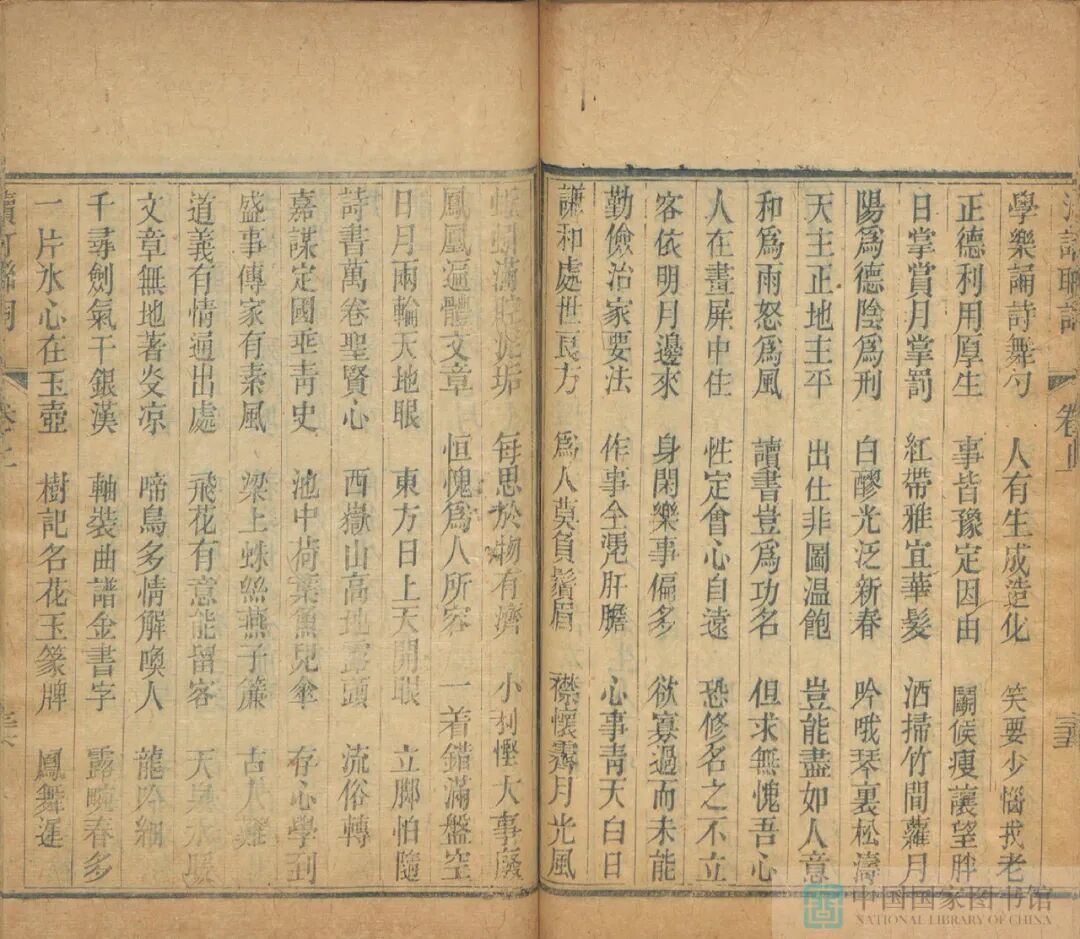 學樂誦詩舞勺　人有生成造化　笑要少惱我老
正德利用厚生　事皆豫定因由　鬬候瘦讓望胖
日掌賞月掌罰　紅帶雅宜華髮　洒掃竹間蘿月
陽爲德陰爲刑　白醪光泛新春　吟哦琴裏松濤
天主正地主平　出仕非圖溫飽　豈能盡如人意
和爲雨怒爲風　讀書豈爲功名　但求無愧吾心
人在畫屏中住　性定會心自遠　恐修名之不立
客依明月邊來　身閑樂事偏多　欲寡過而未能
勤儉治家要法　作事全凴肝膽　心事靑天白日
謙和處世良方　爲人莫負鬚眉　襟懷霽月光風
滿腔泥垢　每思於物有濟　小利慳大事廢
鳳凰遍體文章　恒愧爲人所容　一着錯滿盤空
日月兩輪天地眼　東方日上天開眼　立脚怕隨
詩書萬卷聖賢心　西嶽山高地露頭　流俗轉
嘉謀定國垂靑史　池中荷葉魚兒傘　存心學到
盛事傳家有素風　梁上蛛絲燕子簾　古人難
道義有情通出處　飛花有意能留客　天泉水暖
文章無地著炎凉　啼鳥多情解喚人　龍吟細
千尋劍氣干銀漢　軸裝曲譜金書字　露畹春多
一片氷心在玉壺　樹記名花玉篆牌　鳳舞遲
中国国家图书馆
NATIONAL LIBRARY OF CHINA